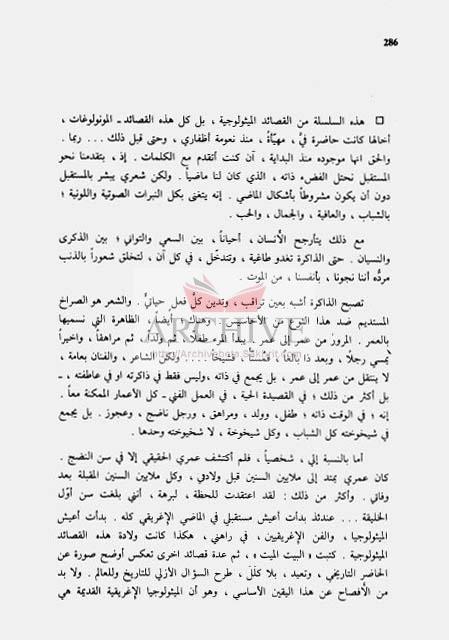 286
□ هذه السلسلة من القصائد الميثولوجية ، بل كل هذه القصائد ـ المونولوغات ،
أخالها كانت حاضرة فيَّ ، مهيّأة ، منذ نعومة أظفاري ، وحتى قبل ذلك ... ربما .
والحق انها موجوده منذ البداية ، آن كنت أتقدم مع الكلمات . إذ ، بتقدمنا نحو
المستقبل نحتل الفضء ذاته ، الذي كان لنا ماضياً . ولكن شعري يبشر بالمستقبل
دون أن يكون مشروطاً بأشكال الماضي . إنه يتغنى بكل النبرات الصوتية واللونية ؛
بالشباب ، والعافية ، والجمال ، والحب .
مع ذلك يتأرجح الأنسان ، أحياناً ، بين السعي والتواني ؛ بين الذكرى
والنسيان . حتى الذاكرة تغدو طاغية ، وتتدخّل ، في كل آن ، لتخلق شعوراً بالذنب
مردُّه أننا نجونا ، بأنفسنا ، من الموت .
تصبح الذاكرة أشبه بعين تراقب ، وتدين كلَّ فعل حياتيٍّ . والشعر هو الصراخ
المستديم ضد هذا النوع من الأحاسيس . وهناك ، أيضاً ، الظاهرة التي نسميها
بالعمر . المرور من عمر إلى عمر . يبدأ المرء طفلاً ، ثم ولداً ، ثم مراهقاً ، واخيراً
يمسي رجلاً ، وبعد ذا بالغاً ، فكهلاً ، فشيخاً ... . ولكن الشاعر ، والفنان بعامة ،
لا ينتقل من عمر إلى عمر ، بل يجمع في ذاته ،وليس فقط في ذاكرته او في عاطفته ، ـ
بل أكثر من ذلك ؛ في القصيدة الحية ، في العمل الفني ـ كل الأعمار الممكنة معاً .
إنه ؛ في الوقت ذاته ؛ طفل، وولد ، ومراهق ، ورجل ناضج ، وعجوز . بل يجمع
في شيخوخته كل الشباب ، وكل شيخوخة ، لا شخيوخته وحدها .
أما بالنسبة إلي ، شخصياً ، فلم أكتشف عمري الحقيقي إلا في سن النضج .
كان عمري يمتد إلى ملايين السنين قبل ولادتي ، وكل ملايين السنين المقبلة بعد
وفاتي . وأكثر من ذلك : لقد اعتقدت للحظة ، لبرهة ، أنني بلغت سن أوّل
الخليقة ... عندئذ بدأت أعيش مستقبلي في الماضي الإغريقي كله . بدأت أعيش
الميثولوجيا ، والفن الإغريقيين ، في راهني ، هكذا كانت ولادة هذه القصائد
الميثولوجية . كتبت « البيت الميت » ، ثم عدة قصائد اخرى تعكس أوضح صورة عن
الحاضر التاريخي ، وتعيد ، بلا كَلَل ، طرح السؤال الأزلي للتاريخ وللعالم . ولا بد
من الأفصاح عن هذا اليقين الأساسي ، وهو أن الميثولوجيا الإغريقية القديمة هي
ARCHIVE